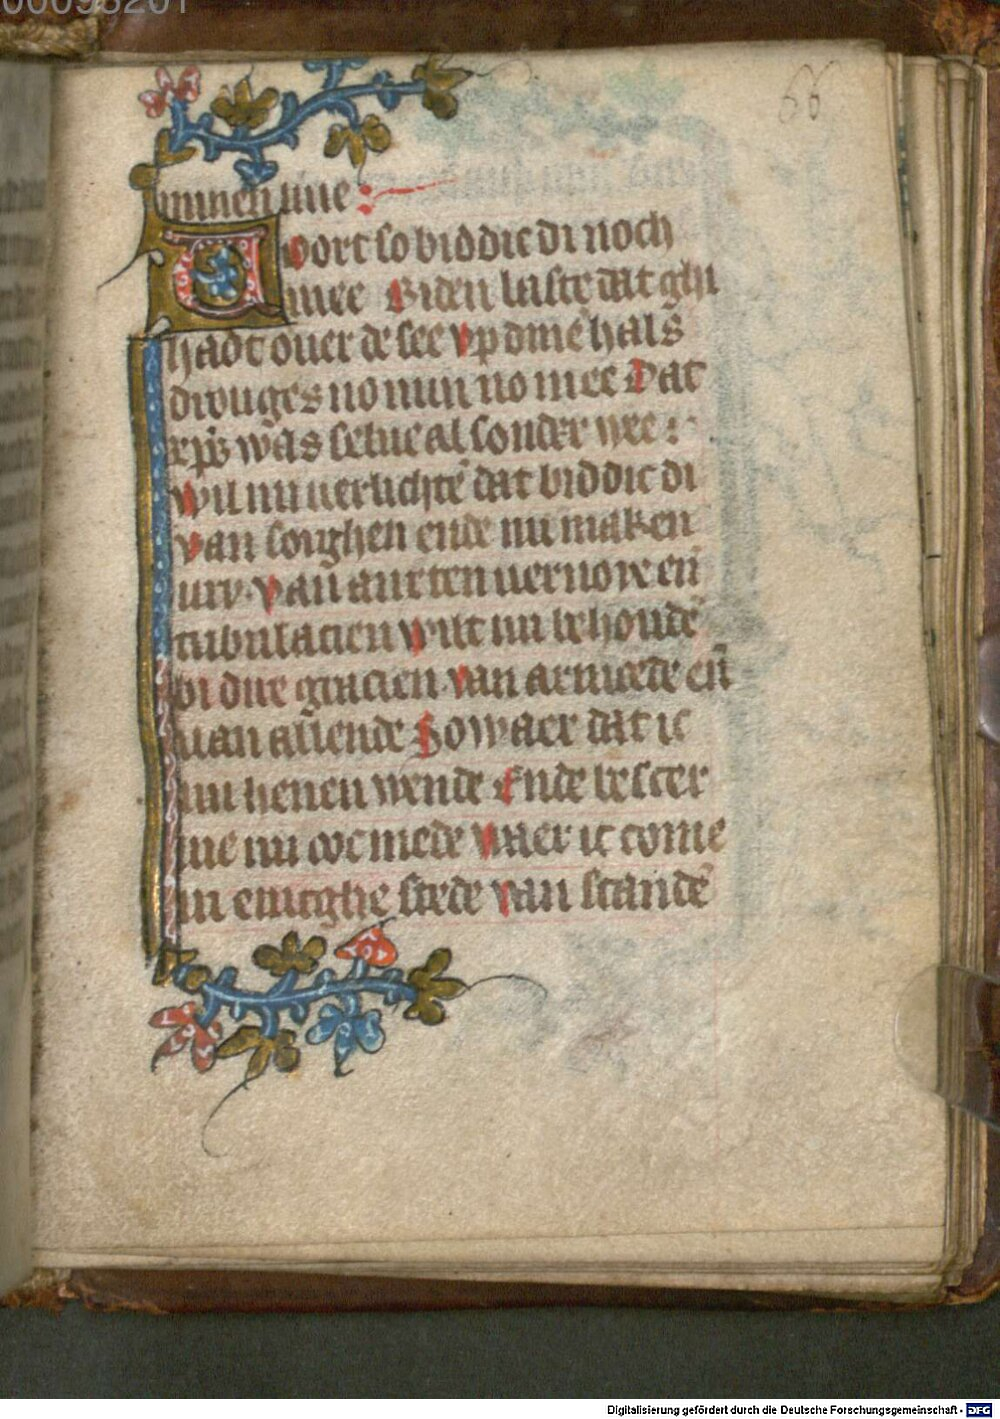 66
minnen liue
Voort so biddic di noch
mee Biden laste dat ghi
hadt ouer de see vp dinē hals
drouges no min no mee Dat
xp̄s was selue al sonder wee :
wil mi uerlichtē dat biddic di
van sorghen ende mi maken
vry. van auxten vernoye en̄
tribulacien wilt mi behoudē
bi diere gracien. van armoede en̄
uan allende So waer dat ic
mi henen wende Ende bescer
me mi ooc mede waer ic come
in enighe stede van scandē
Digitalisierung gefördert durch die Deutsche Forschungsgemeinschaft - DFG